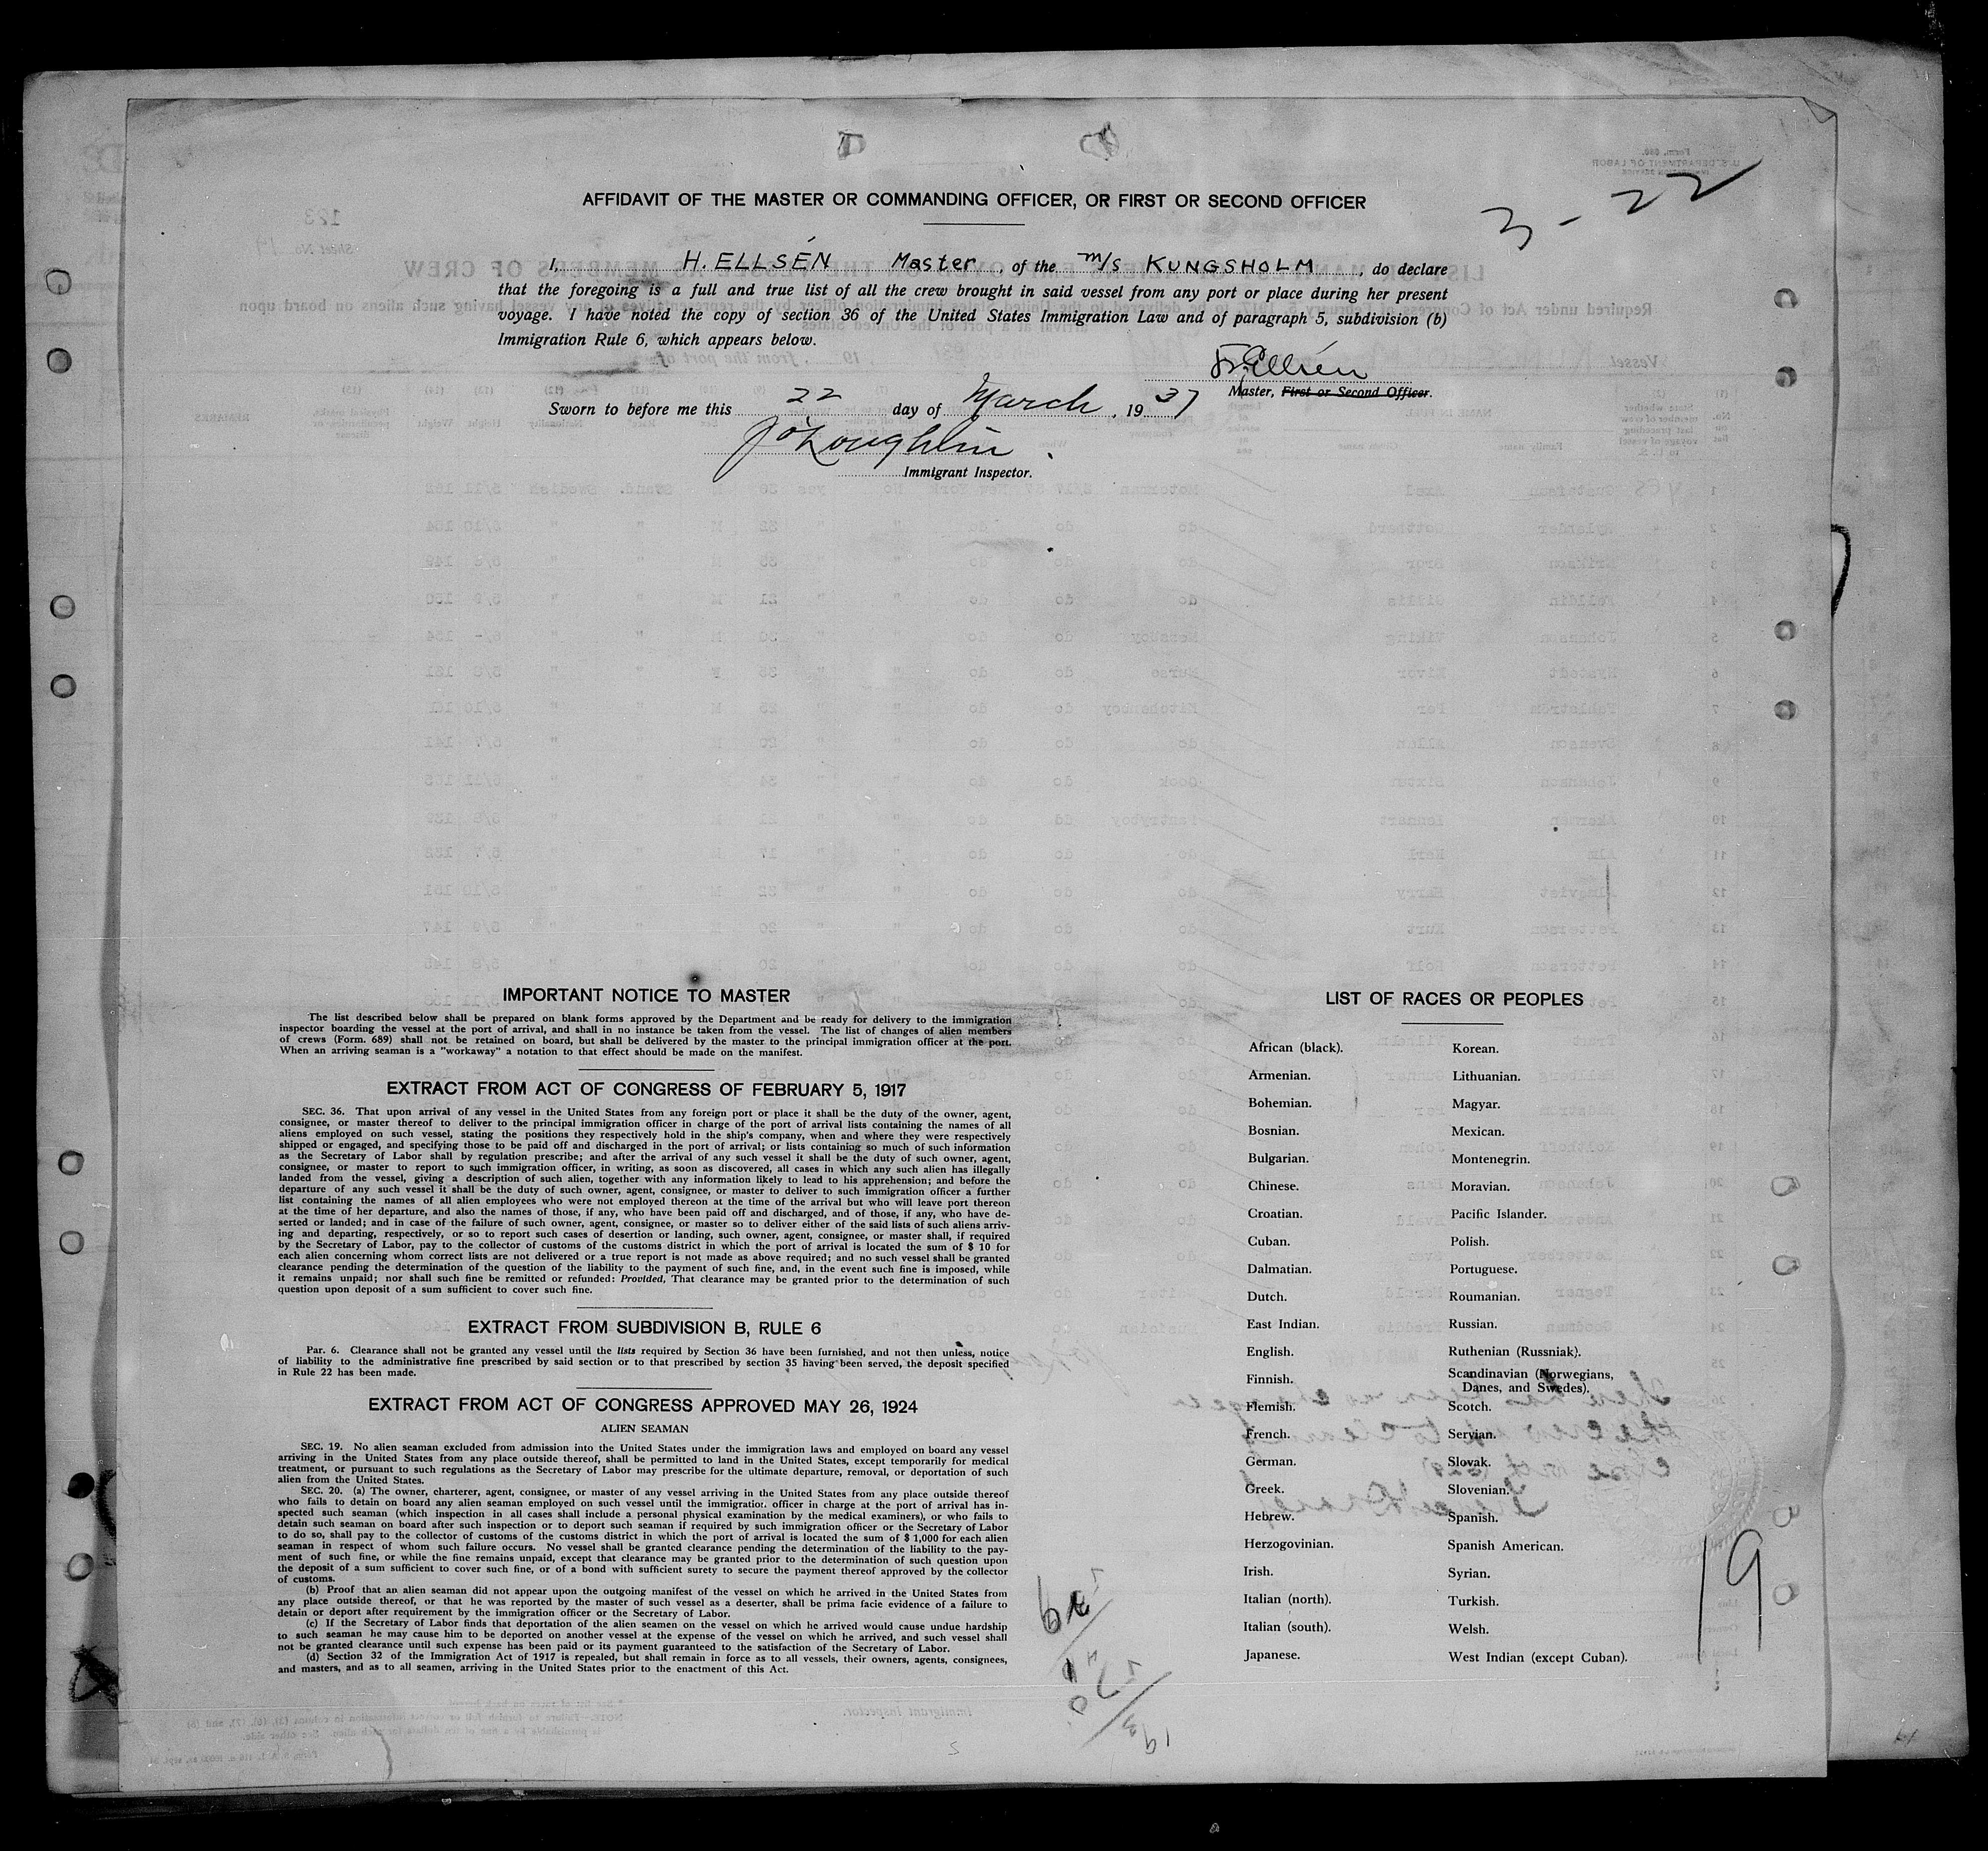 3-22
AFFIDAVIT OF THE MASTER OR COMMANDING OFFICER, OR FIRST OR SECOND OFFICER
I, H. ELLSÉN Master, of the m/s KUNGSHOLM, do declare
that the foregoing is a full and true list of all the crew brought in said vessel from any port or place during her present
voyage. I have noted the copy of section 36 of the United States Immigration Law and of paragraph 5, subdivision (b)
Immigration Rule 6, which appears below.
H. Ellsén
Master, First or Second Officer.
Sworn to before me this 22 day of March, 1937
J O'Loughlin
Immigrant Inspector.
IMPORTANT NOTICE TO MASTER
The list described below shall be prepared on blank forms approved by the Department and be ready for delivery to the immigration
inspector boarding the vessel at the port of arrival, and shall in no instance be taken from the vessel. The list of changes of alien members
of crews (Form. 689) shall not be retained on board, but shall be delivered by the master to the principal immigration officer at the port.
When an arriving seaman is a "workaway" a notation to that effect should be made on the manifest.
EXTRACT FROM ACT OF CONGRESS OF FEBRUARY 5, 1917
SEC. 36. That upon arrival of any vessel in the United States from any foreign port or place it shall be the duty of the owner, agent,
consignee, or master thereof to deliver to the principal immigration officer in charge of the port of arrival lists containing the names of all
aliens employed on such vessel, stating the positions they respectively hold in the ship's company, when and where they were respectively
shipped or engaged, and specifying those to be paid off and discharged in the port of arrival; or lists containing so much of such information
as the Secretary of Labor shall by regulation prescribe; and after the arrival of any such vessel it shall be the duty of such owner, agent,
consignee, or master to report to such immigration officer, in writing, as soon as discovered, all cases in which any such alien has illegally
landed from the vessel, giving a description of such alien, together with any information likely to lead to his apprehension; and before the
departure of any such vessel it shall be the duty of such owner, agent, consignee, or master to deliver to such immigration officer a further
list containing the names of all alien employees who were not employed thereon at the time of the arrival but who will leave port thereon
at the time of her departure, and also the names of those, if any, who have been paid off and discharged, and of those, if any, who have de-
serted or landed; and in case of the failure of such owner, agent, consignee, or master so to deliver either of the said lists of such aliens arriv-
ing and departing, respectively, or so to report such cases of desertion or landing, such owner, agent, consignee, or master shall, if required
by the Secretary of Labor, pay to the collector of customs of the customs district in which the port of arrival is located the sum of $ 10 for
each alien concerning whom correct lists are not delivered or a true report is not made as above required; and no such vessel shall be granted
clearance pending the determination of the question of the liability to the payment of such fine, and, in the event such fine is imposed, while
it remains unpaid; nor shall such fine be remitted or refunded: Provided, That clearance may be granted prior to the determination of such
question upon deposit of a sum sufficient to cover such fine.
EXTRACT FROM SUBDIVISION B, RULE 6
Par. 6. Clearance shall not be granted any vessel until the lists required by Section 36 have been furnished, and not then unless, notice
of liability to the administrative fine prescribed by said section or to that prescribed by section 35 having been served, the deposit specified
in Rule 22 has been made.
EXTRACT FROM ACT OF CONGRESS APPROVED MAY 26, 1924
ALIEN SEAMAN
SEC. 19. No alien seaman excluded from admission into the United States under the immigration laws and employed on board any vessel
arriving in the United States from any place outside thereof, shall be permitted to land in the United States, except temporarily for medical
treatment, or pursuant to such regulations as the Secretary of Labor may prescribe for the ultimate departure, removal, or deportation of such
alien from the United States.
SEC. 20. (a) The owner, charterer, agent, consignee, or master of any vessel arriving in the United States from any place outside thereof
who fails to detain on board any alien seaman employed on such vessel until the immigration officer in charge at the port of arrival has in-
spected such seaman (which inspection in all cases shall include a personal physical examination by the medical examiners), or who fails to
detain such seaman on board after such inspection or to deport such seaman if required by such immigration officer or the Secretary of Labor
to do so, shall pay to the collector of customs of the customs district in which the port of arrival is located the sum of $ 1,000 for each alien
seaman in respect of whom such failure occurs. No vessel shall be granted clearance pending the determination of the liability to the pay-
ment of such fine, or while the fine remains unpaid, except that clearance may be granted prior to the determination of such question upon
the deposit of a sum sufficient to cover such fine, or of a bond with sufficient surety to secure the payment thereof approved by the collector
of customs.
(b) Proof that an alien seaman did not appear upon the outgoing manifest of the vessel on which he arrived in the United States from
any place outside thereof, or that he was reported by the master of such vessel as a deserter, shall be prima facie evidence of a failure to
detain or deport after requirement by the immigration officer or the Secretary of Labor.
(c) If the Secretary of Labor finds that deportation of the alien seamen on the vessel on which he arrived would cause undue hardship
to such seaman he may cause him to be deported on another vessel at the expense of the vessel on which he arrived, and such vessel shall
not be granted clearance until such expense has been paid or its payment guaranteed to the satisfaction of the Secretary of Labor.
(d) Section 32 of the Immigration Act of 1917 is repealed, but shall remain in force as to all vessels, their owners, agents, consignees,
and masters, and as to all seamen, arriving in the United States prior to the enactment of this Act.
LIST OF RACES OR PEOPLES
African (black).
Armenian.
Bohemian.
Bosnian.
Bulgarian.
Chinese.
Croatian.
Cuban.
Dalmatian.
Dutch.
East Indian.
English.
Finnish.
Flemish.
French.
German.
Greek.
Hebrew.
Herzogovinian.
Irish.
Italian (north).
Italian (south).
Japanese.
Korean.
Lithuanian.
Magyar.
Mexican.
Montenegrin.
Moravian.
Pacific Islander.
Polish.
Portuguese.
Roumanian.
Russian.
Ruthenian (Russniak).
Scandinavian (Norwegians,
Danes, and Swedes).
Scotch.
Servian.
Slovak.
Slovenian.
Spanish.
Spanish American.
Syrian.
Turkish.
Welsh.
West Indian (except Cuban).
19